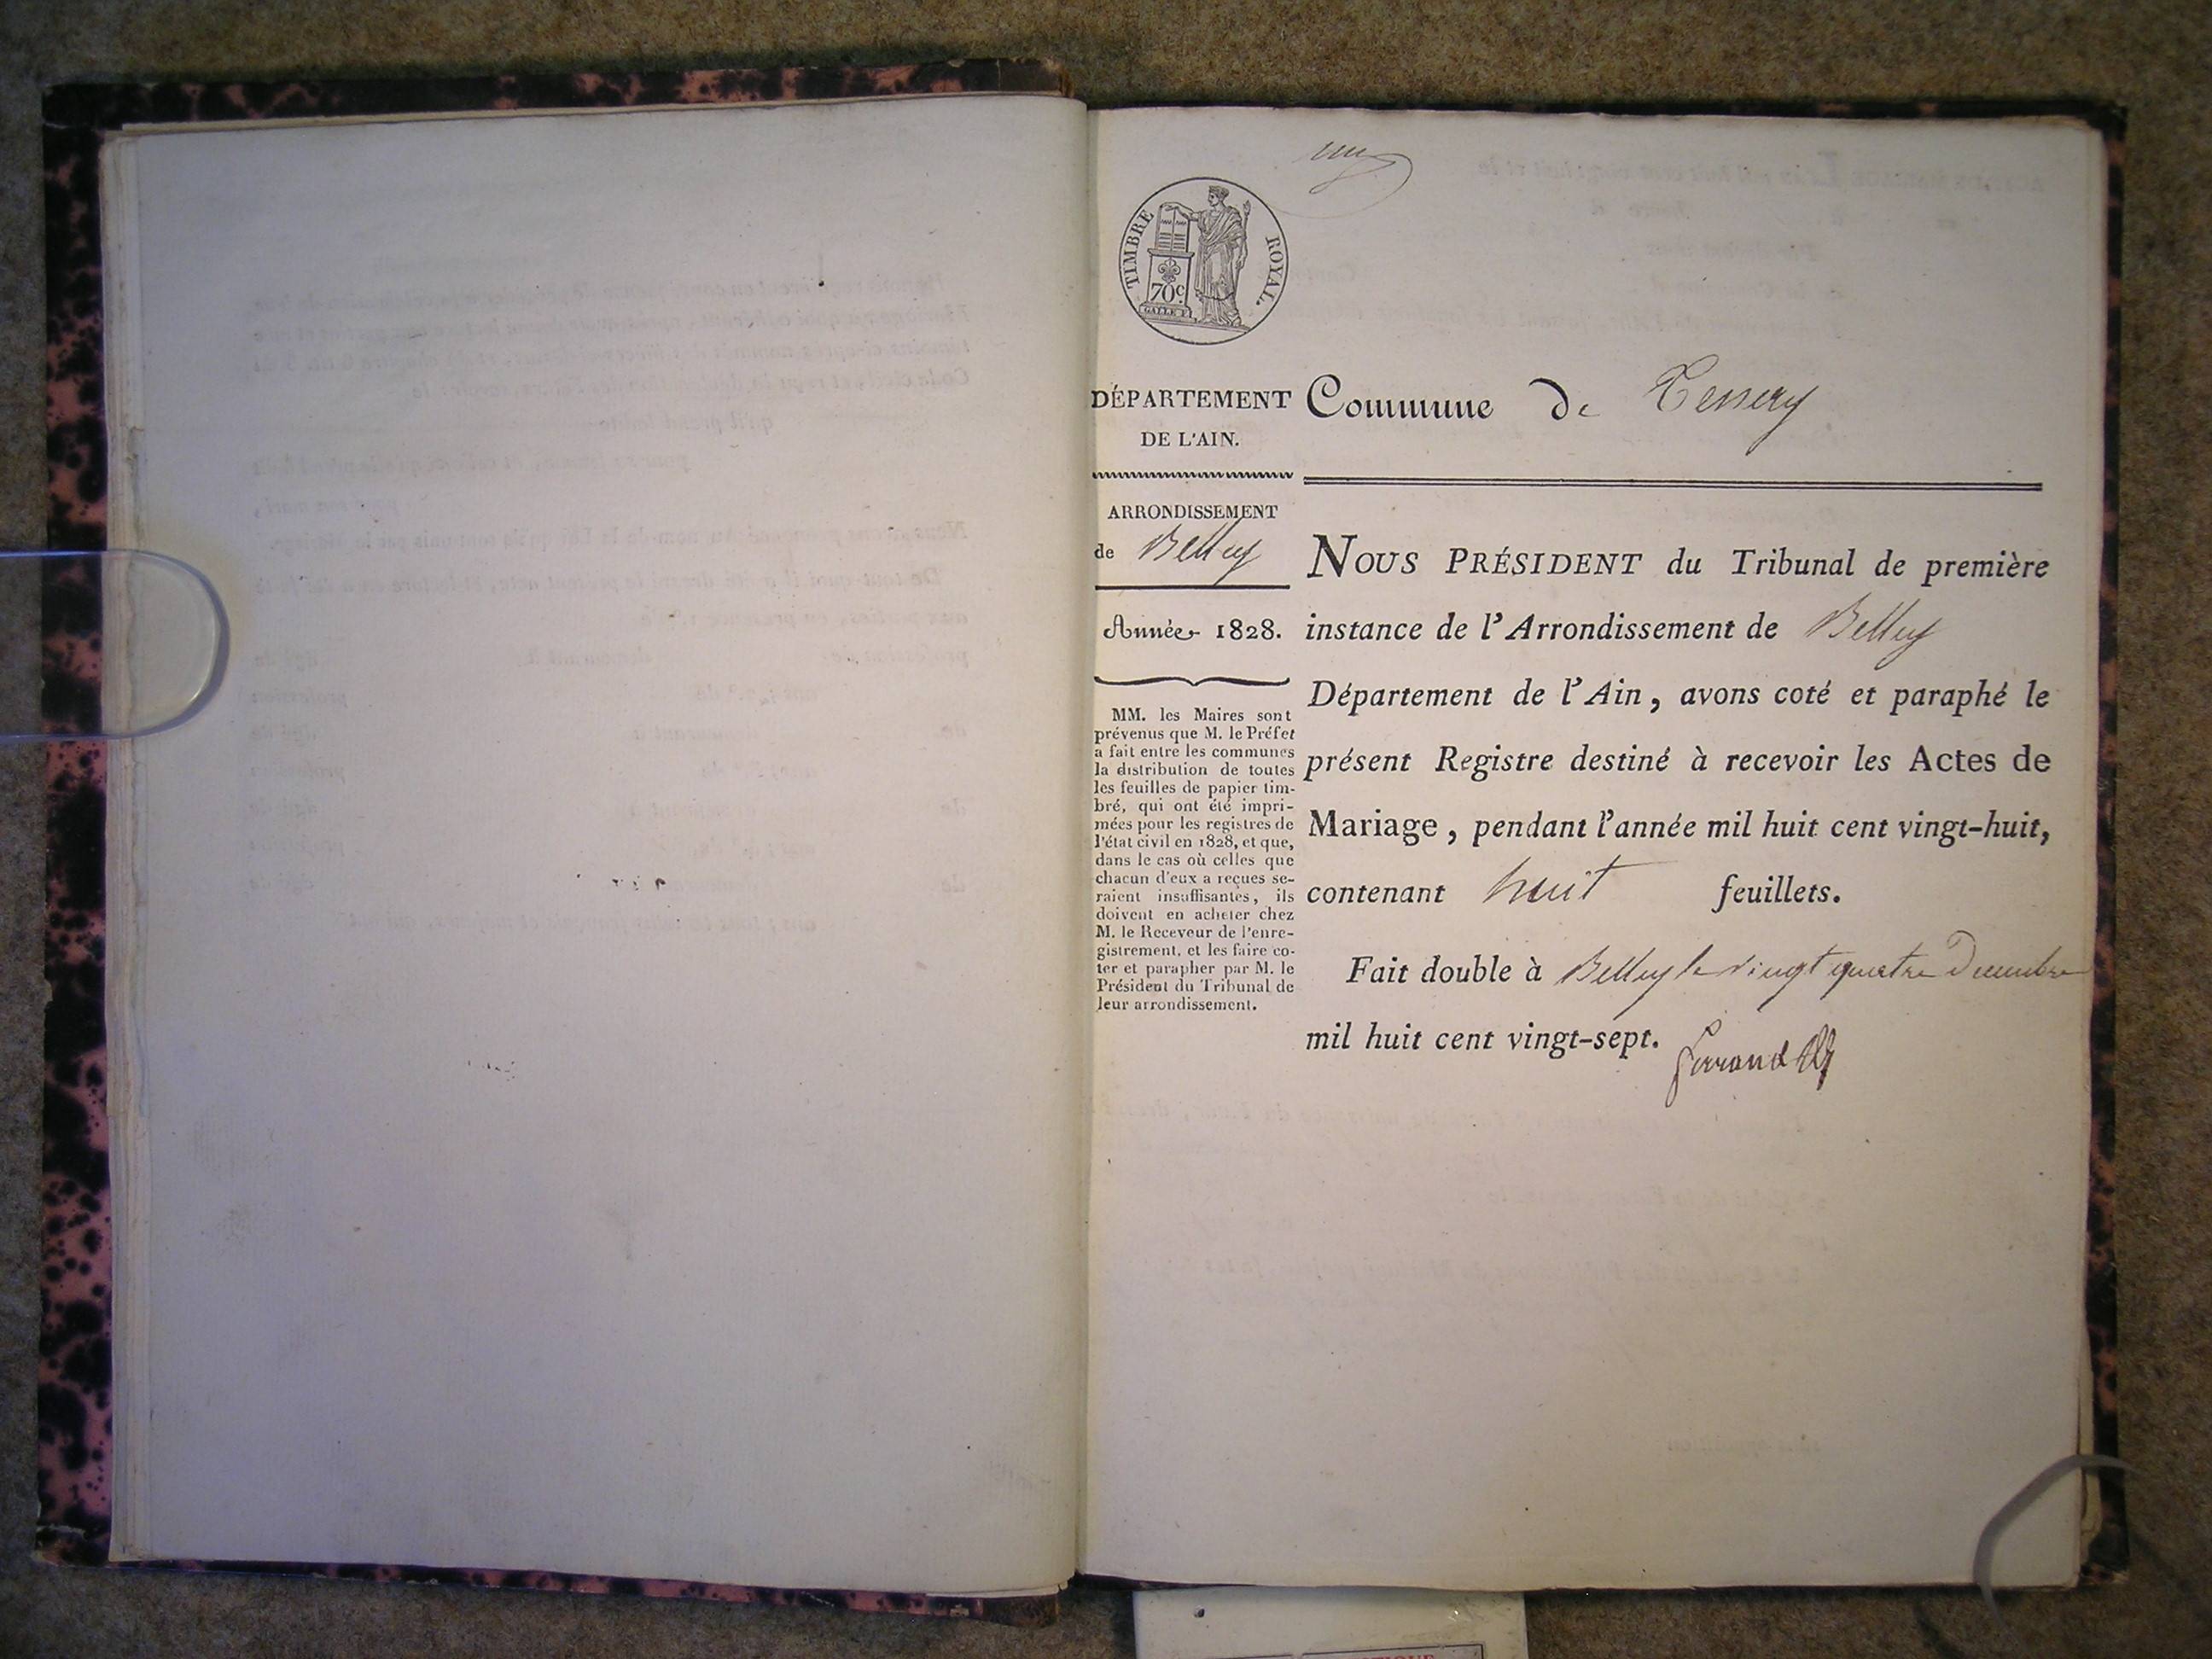 TIMBRE ROYAL.
70c.
GALLE F.
DÉPARTEMENT
DE L'AIN.
Commune de
ARRONDISSEMENT
de Belley
Année 1828.
MM. les Maires sont
prévenus que M. le Préfet
a fait entre les communes
la distribution de toutes
les feuilles de papier tim-
bré, qui ont été impri-
mées pour les registres de
l'état civil en 1828, et que,
dans le cas où celles que
chacun d'eux a reçues se-
raient insuffisantes, ils
doivent en acheter chez
M. le Receveur de l'enre-
gistrement, et les faire co-
ter et parapher par M. le
Président du Tribunal de
leur arrondissement.
NOUS PRÉSIDENT du Tribunal de première
instance de l'Arrondissement de Belley
Département de l'Ain, avons coté et paraphé le
présent Registre destiné à recevoir les Actes de
Mariage, pendant l'année mil huit cent vingt-huit,
contenant huit feuillets.
Fait double à Belley le vingt quatre Decembre
mil huit cent vingt-sept.